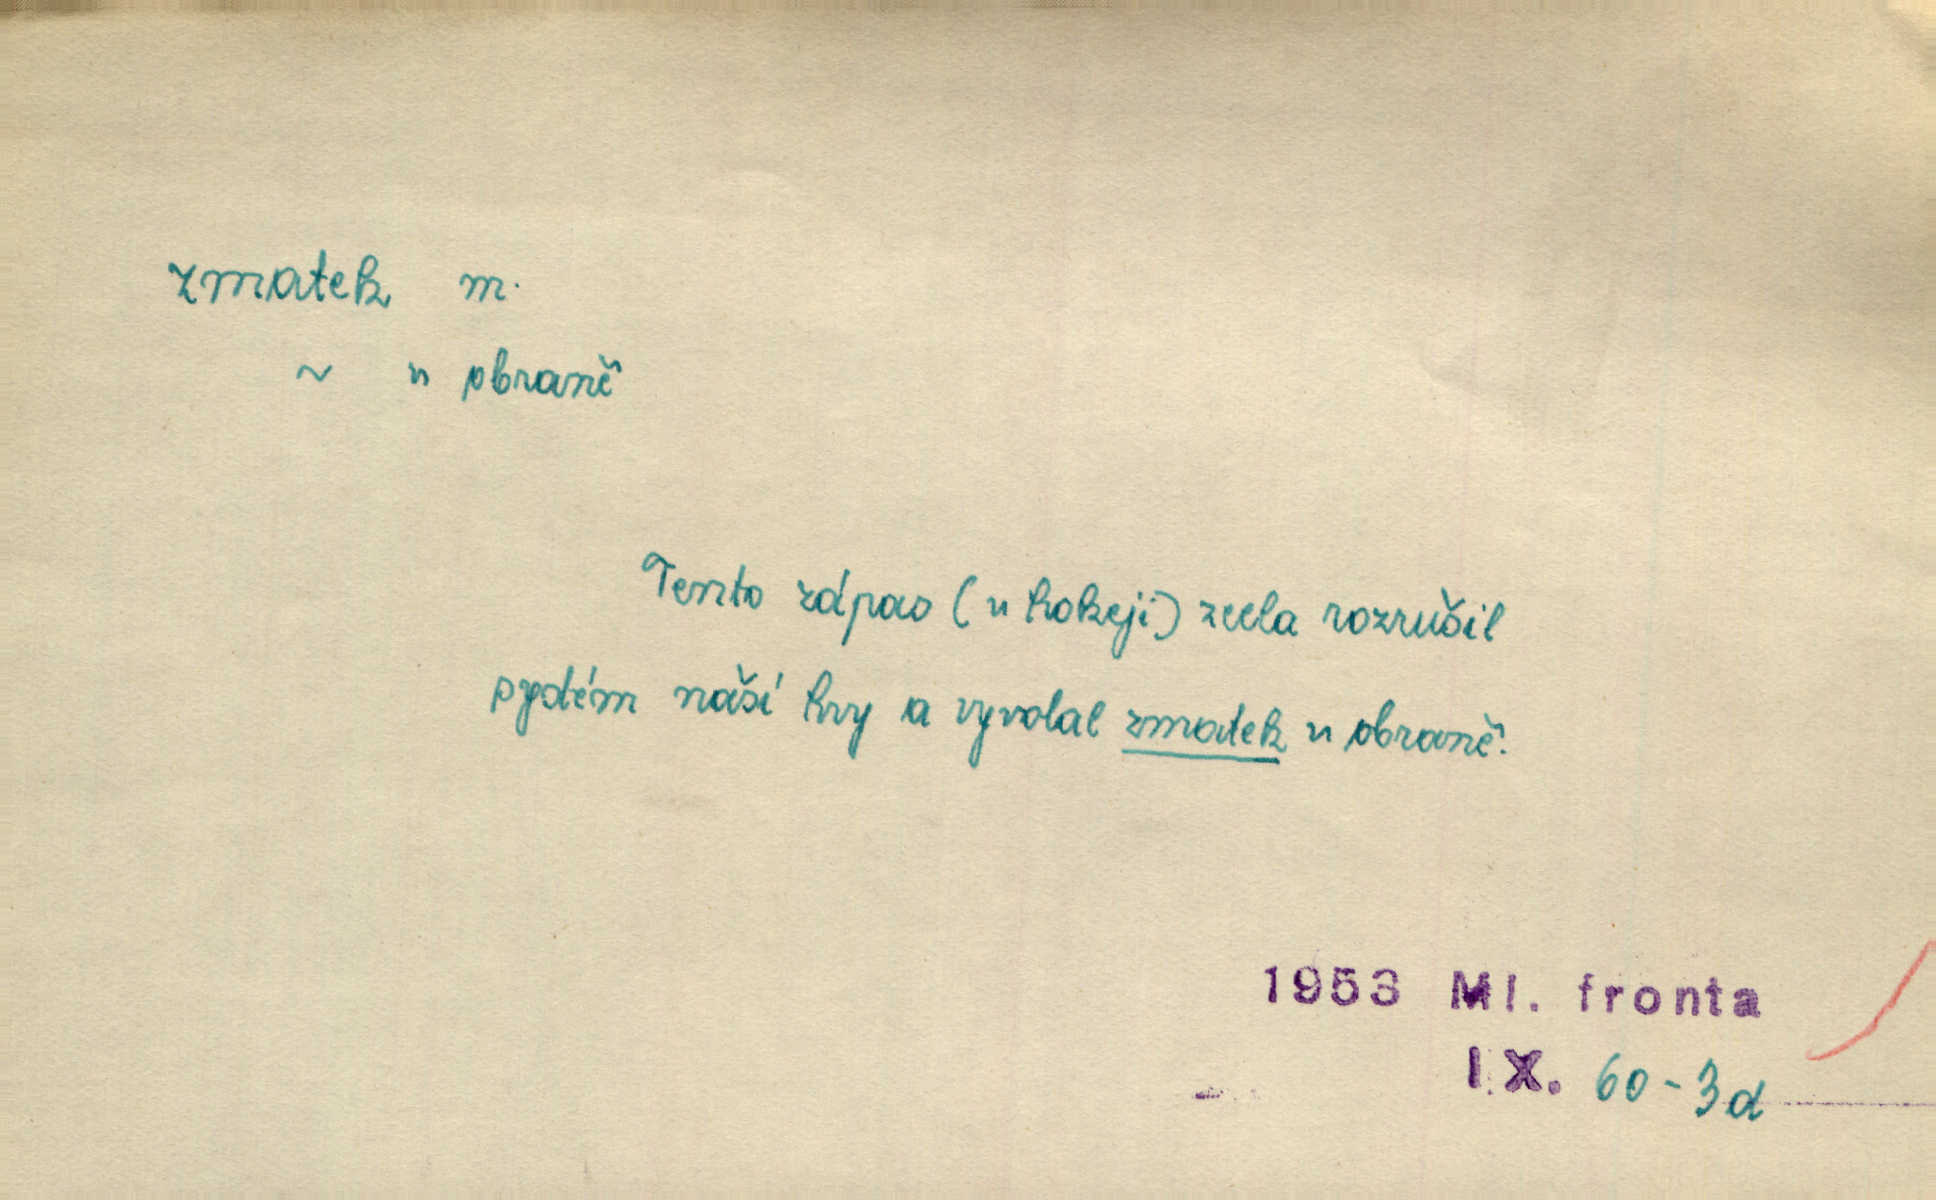 zmatek m.
~ v obraně
Tento zápas (v hokeji) zcela rozrušil
systém naší hry a vyvolal zmatek v obraně.
1953 Ml. fronta
IX. 60-3d